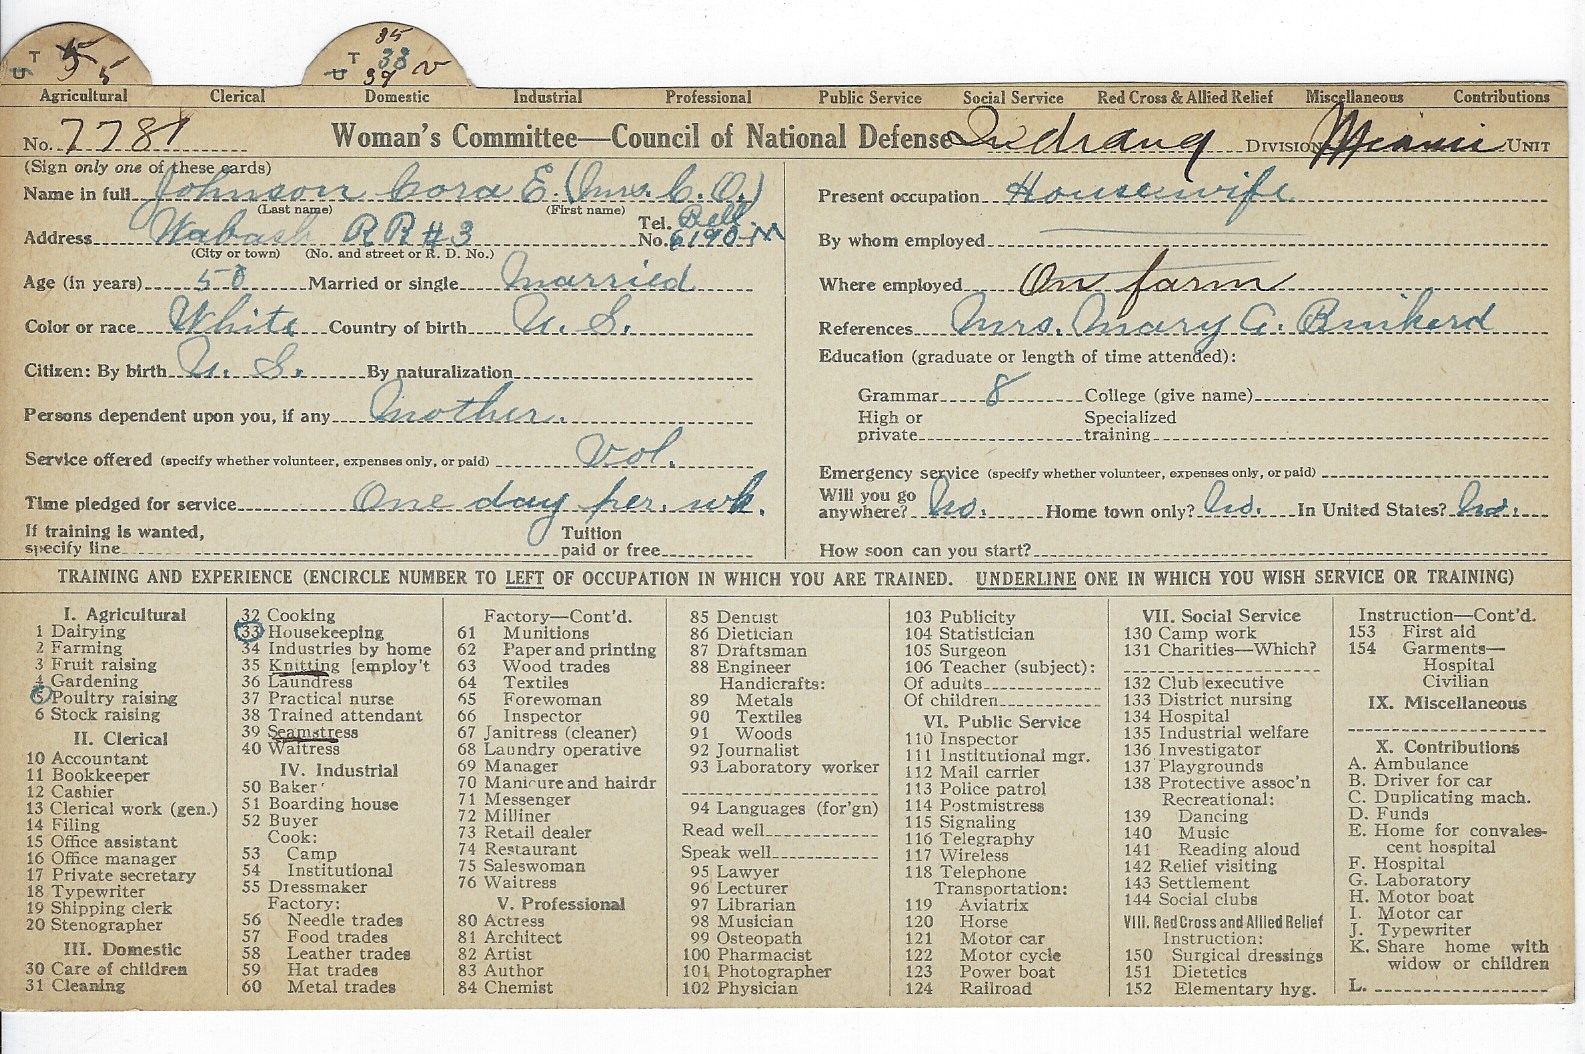 T 5 5
U
35
T 33
U 39 v
Agricultural Clerical Domestic Industrial Professional Public Service Social Service Red Cross & Allied Relief Miscellaneous Contributions
No. 7781 Woman's Committee—Council of National Defense Indiana DIVISION Miami UNIT
(Sign only one of these cards)
Name in full Johnson Cora E. (Mrs. C. O.)
(Last name) (First name)
Address Wabash RR #3 Tel. No. Bell 6190-M
(City or town) (No. and street or R. D. No.)
Age (in years) 50 Married or single Married
Color or race White Country of birth U. S.
Citizen: By birth U. S. By naturalization
Persons dependent upon you, if any Mother.
Service offered (specify whether volunteer, expenses only, or paid) Vol.
Time pledged for service One day per. wk.
If training is wanted, specify line Tuition paid or free
Present occupation Housewife
By whom employed
Where employed On farm
References Mrs. Mary G.
Education (graduate or length of time attended):
Grammar 8 College (give name)
High or private Specialized training
Emergency service (specify whether volunteer, expenses only, or paid)
Will you go anywhere? No. Home town only? No. In United States? No.
How soon can you start?
TRAINING AND EXPERIENCE (ENCIRCLE NUMBER TO LEFT OF OCCUPATION IN WHICH YOU ARE TRAINED. UNDERLINE ONE IN WHICH YOU WISH SERVICE OR TRAINING)
I. Agricultural
1 Dairying
2 Farming
3 Fruit raising
4 Gardening
5 Poultry raising
6 Stock raising
II. Clerical
10 Accountant
11 Bookkeeper
12 Cashier
13 Clerical work (gen.)
14 Filing
15 Office assistant
16 Office manager
17 Private secretary
18 Typewriter
19 Shipping clerk
20 Stenographer
III. Domestic
30 Care of children
31 Cleaning
32 Cooking
33 Housekeeping
34 Industries by home
35 Knitting [employ't
36 Laundress
37 Practical nurse
38 Trained attendant
39 Seamstress
40 Waitress
IV. Industrial
50 Baker
51 Boarding house
52 Buyer
Cook:
53 Camp
54 Institutional
55 Dressmaker
Factory:
56 Needle trades
57 Food trades
58 Leather trades
59 Hat trades
60 Metal trades
Factory—Cont'd.
61 Munitions
62 Paper and printing
63 Wood trades
64 Textiles
65 Forewoman
66 Inspector
67 Janitress (cleaner)
68 Laundry operative
69 Manager
70 Manicure and hairdr
71 Messenger
72 Milliner
73 Retail dealer
74 Restaurant
75 Saleswoman
76 Waitress
V. Professional
80 Actress
81 Architect
82 Artist
83 Author
84 Chemist
85 Dentist
86 Dietician
87 Draftsman
88 Engineer
Handicrafts:
89 Metals
90 Textiles
91 Woods
92 Journalist
93 Laboratory worker
94 Languages (for'gn)
Read well
Speak well
95 Lawyer
96 Lecturer
97 Librarian
98 Musician
99 Osteopath
100 Pharmacist
101 Photographer
102 Physician
103 Publicity
104 Statistician
105 Surgeon
106 Teacher (subject):
Of adults
Of children
VI. Public Service
110 Inspector
111 Institutional mgr.
112 Mail carrier
113 Police patrol
114 Postmistress
115 Signaling
116 Telegraphy
117 Wireless
118 Telephone
Transportation:
119 Aviatrix
120 Horse
121 Motor car
122 Motor cycle
123 Power boat
124 Railroad
VII. Social Service
130 Camp work
131 Charities—Which?
132 Club executive
133 District nursing
134 Hospital
135 Industrial welfare
136 Investigator
137 Playgrounds
138 Protective assoc'n
Recreational:
139 Dancing
140 Music
141 Reading aloud
142 Relief visiting
143 Settlement
144 Social clubs
VIII. Red Cross and Allied Relief
Instruction:
150 Surgical dressings
151 Dietetics
152 Elementary hyg.
Instruction—Cont'd.
153 First aid
154 Garments—
Hospital
Civilian
IX. Miscellaneous
X. Contributions
A. Ambulance
B. Driver for car
C. Duplicating mach.
D. Funds
E. Home for convales-
cent hospital
F. Hospital
G. Laboratory
H. Motor boat
I. Motor car
J. Typewriter
K. Share home with
widow or children
L.